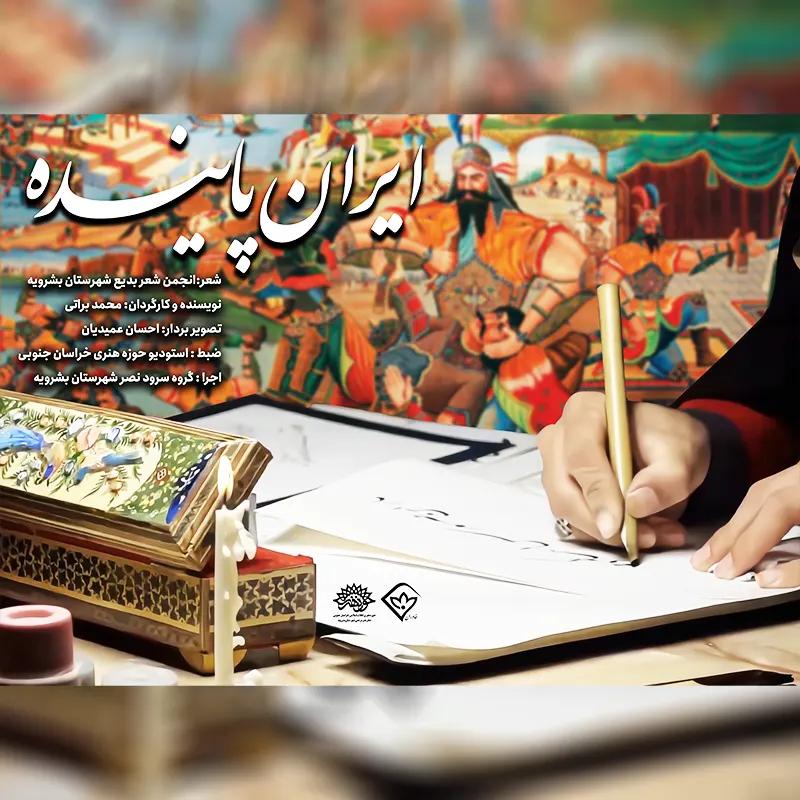 ایران پاینده
شعر:انجمن شعر بدیع شهرستان بشرویه
نویسنده و کارگردان: محمد براتی
تصویر بردار: احسان عمیدیان
ضبط : استودیو حوزه هنری خراسان جنوبی
اجرا : گروه سرود نصر شهرستان بشرویه